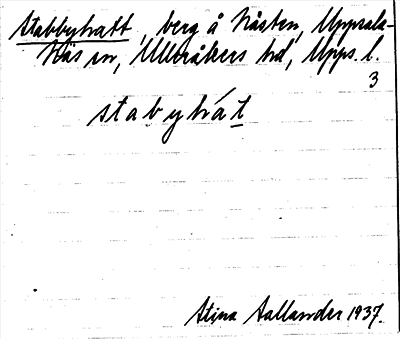 Stabbyhatt, berg å Nåsten, Uppsala-
Näs sn, Ulleråkers hd, Upps. l.
3
stabyhát
Stina Aallander 1937.